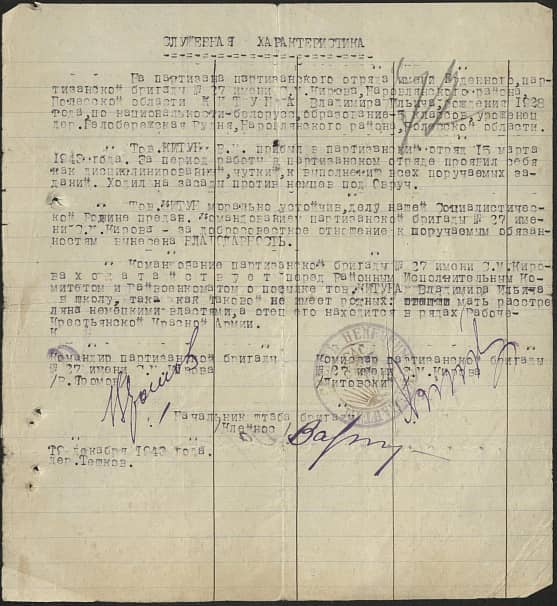 СЛУЖЕБНАЯ ХАРАКТЕРИСТИКА
На партизана партизанского отряда имени Буденного, пар-
тизанской бригады № 27 имени С.М.Кирова, Наровлянского района,
Полесской области К И Т У Р А Владимира Ильича, рождения 1928
года, по национальности-белорус, образование-5 классов, уроженец
дер.Белобережская Рудня, Наровлянского района, Полесской области.
Тов.КИТУР В.И. прибыл в партизанский отряд 15 марта
1943 года. За период работы в партизанском отряде проявил себя
как дисциплинированный, чуткий, к выполнению всех поручаемых за-
даний. Ходил на засады против немцев под Овруч.
Тов.КИТУР морально устойчив, делу нашей Социалистичес-
кой Родине предан. Командованием партизанской бригады № 27 име-
ни С.М.Кирова - за добросовестное отношение к поручаемым обязан-
ностям вынесена БЛАГОДАРНОСТЬ.
Командование партизанской бригады № 27 имени С.М.Киро-
ва х о д а т а й с т в у е т перед Районным Исполнительным Ко-
митетом и Райвоенкоматом о посылке тов.КИТУРА Владимира Ильича
в школу, так как таковой не имеет родных: мать расстре-
ляна немецкими властями, а отец его находится в рядах Рабоче-
Крестьянской Красной Армии.
К
Командир партизанской бригады
№ 27 имени С.М.Кирова
Комиссар партизанской бригады
№ 27 имени С.М.Кирова
/Литовский/
Начальник штаба бригады
19 декабря 1943 года.
дер.Тешков.